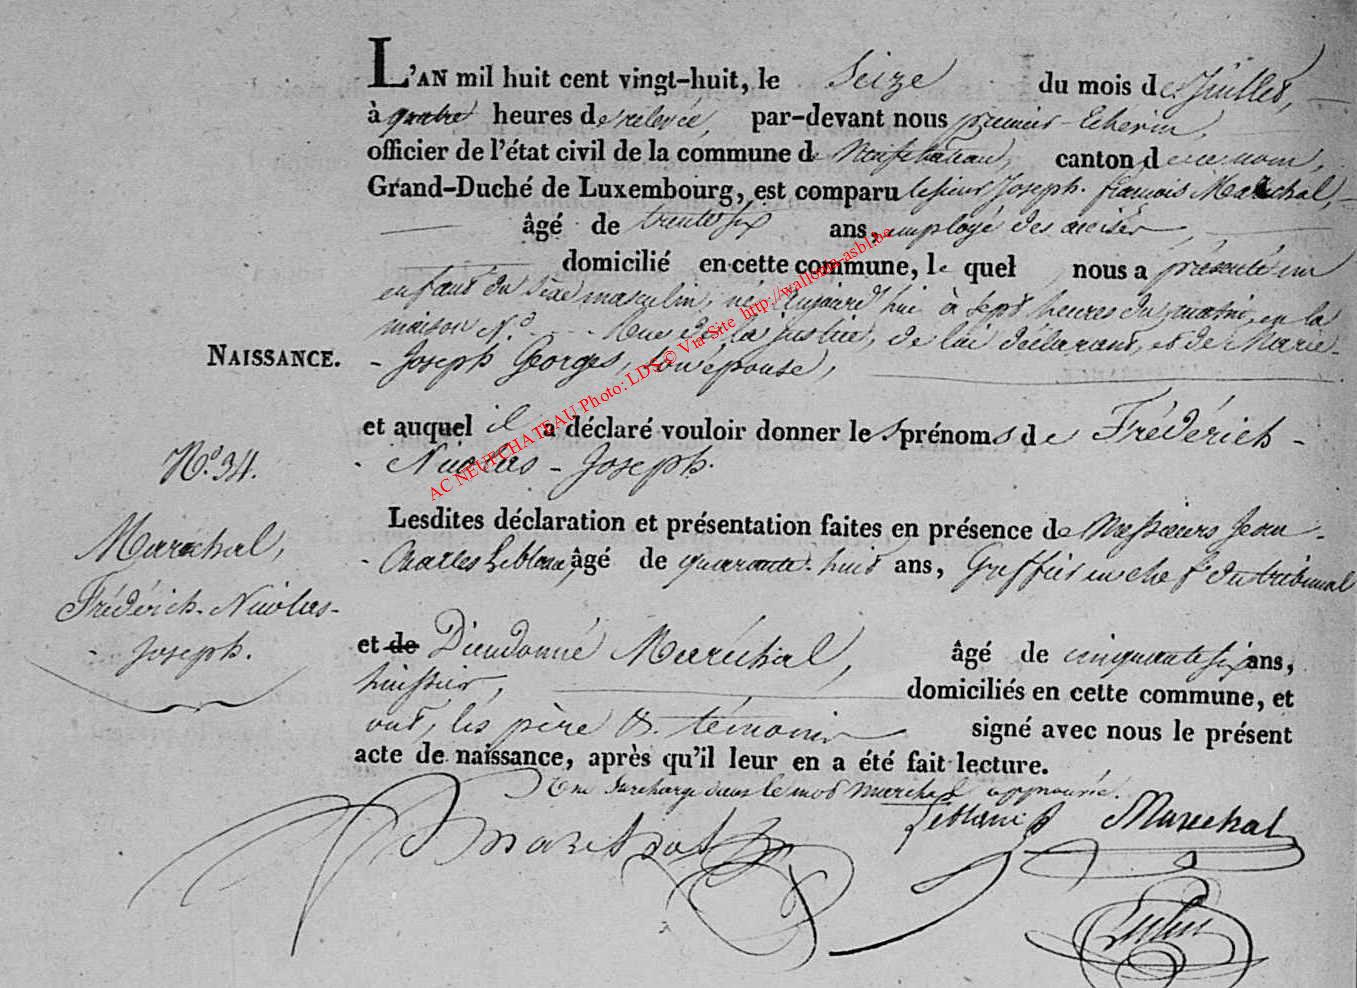 L'AN mil huit cent vingt-huit, le Seize du mois de Juillet,
à quatre heures de relevée, par-devant nous premier Echevin,
officier de l'état civil de la commune de Neufchateau, canton de ce nom,
Grand-Duché de Luxembourg, est comparu le sieur Joseph-françois Maréchal,
âgé de trente six ans, employé des accises
domicilié en cette commune, le quel nous a présenté un
enfant du sexe masculin, né aujourd'hui à sept heures du matin, en la
maison N.o Rue de la justice, de lui déclarant, et de Marie-
Joseph Georges, son épouse,
NAISSANCE.
et auquel il a déclaré vouloir donner les prénoms de Frédérich-
Nicolas-Joseph.
N.o 34.
Maréchal,
Frédérich-Nicolas-
Joseph.
Lesdites déclaration et présentation faites en présence de Messieurs Jean-
Charles Leblanc, âgé de quarante-huit ans, Greffier en chef du tribunal
et de Dieudonné Maréchal, âgé de cinquante six ans,
huissier, domiciliés en cette commune, et
ont, les père & témoins signé avec nous le présent
acte de naissance, après qu'il leur en a été fait lecture.
Une surcharge dans le mot Marechal approuvée.
Marechal
Leblanc
Marechal
AC NEUFCHATEAU Photo: LDS © Via Site http://wallonia-asbl.be